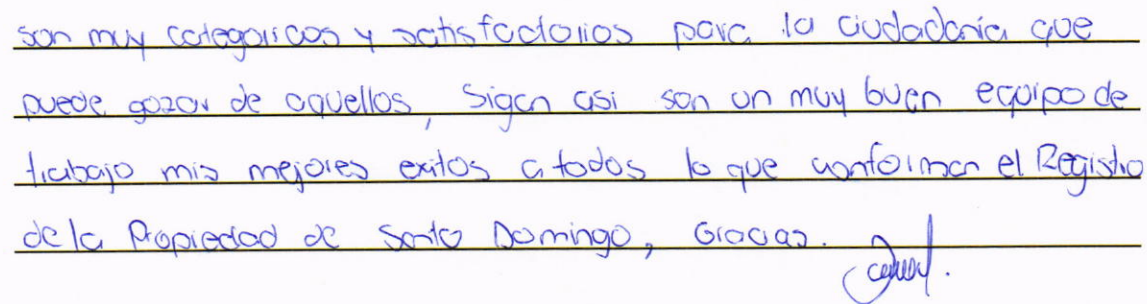 son muy categoricos y satisfactorios para la ciudadania que
puede gozar de aquellos, sigan asi son un muy buen equipo de
trabajo mis mejores exitos a todos lo que conforman el Registro
de la Propiedad de Santo Domingo, Gracias.